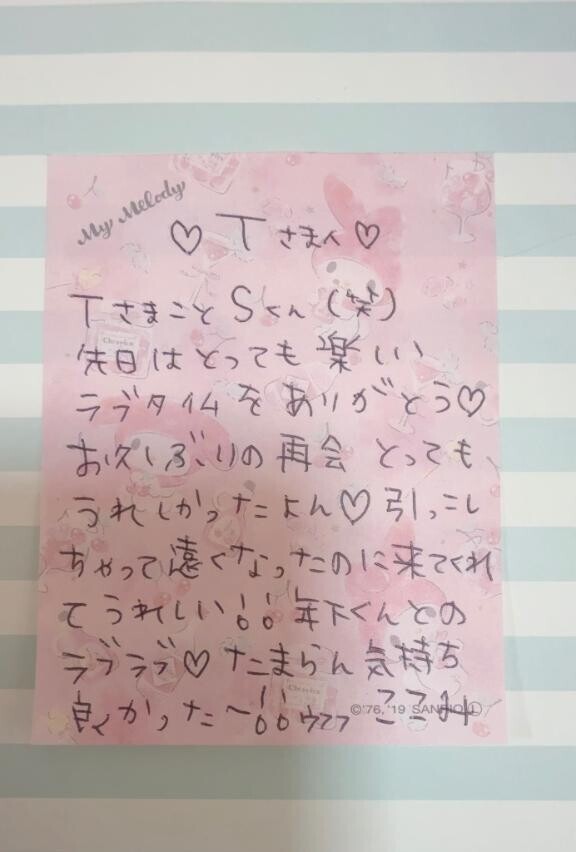 My Melody
♡ Tさまへ ♡
TさまことSくん(笑)
先日はとっても楽しい
ラブタイムをありがとう♡
お久しぶりの再会 とっても
うれしかったよん♡引っこし
ちゃって遠くなったのに来てくれ
てうれしい!! 年下くんとの
ラブラブ♡たまらん気持ち
良かった〜!! ここみ
©'76, '19 SANRIO